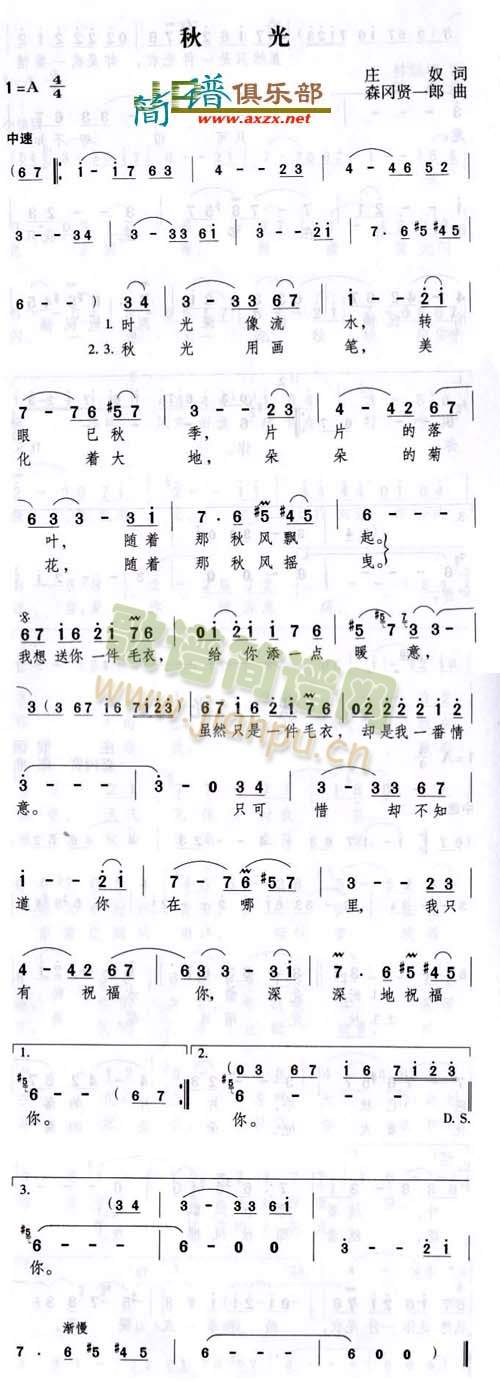 秋 光
1=A 4/4
庄 奴 词
森冈贤一郎 曲
简谱俱乐部
www.axzx.net
中速
(6 7 ‖: i - i 7 6 3 | 4 - - 2 3 | 4 - 4 6 5 2 |
3 - - 3 | 3 - 3 3 6 i | 3 - - 2 i | 7 . 6 #5 #4 5 |
6 - - ) 3 4 | 3 - 3 3 6 7 | i - - 2 i |
1. 时 光 像 流 水, 转
2. 3. 秋 光 用 画 笔, 美
7 - 7 6 #5 7 | 3 - - 2 3 | 4 - 4 2 6 7 |
眼 已 秋 季, 片 片 的 落
化 着 大 地, 朵 朵 的 菊
6 3 3 - 3 i | 7 . 6 #5 #4 5 | 6 - - -
叶, 随着 那 秋 风 飘 起。
花, 随着 那 秋 风 摇 曳。
6 7 i 6 2 i 7 6 | 0 i 2 i i 7 6 | #5 5 7 3 3 -
我想 送你 一件 毛衣, 给 你 添 一 点 暖 意,
3 (3 6 7 i 6 7 i 2 3) | 6 7 i 6 2 i 7 6 | 0 2 2 2 2 i 2
虽然 只是 一件 毛衣, 却 是我 一番 情
3 - - - | 3 - 0 3 4 | 3 - 3 3 6 7
意。 只 可 惜 却 不知
i - - 2 i | 7 - 7 6 #5 7 | 3 - - 2 3
道 你 在 哪 里, 我 只
4 - 4 2 6 7 | 6 3 3 - 3 i | 7 6 #5 #4 5
有 祝 福 你, 深 深 地 祝 福
1. 2.
#5 6 - - (6 7 :‖ (0 3 6 7 i 6 7 i 2 3
#5 6 - - -
你。 你。 D. S.
3.
(3 4 | 3 - 3 3 6 i
#5 6 - - - | 6 - 0 0 | 3 - - 2 i
你。
渐慢
7 . 6 #5 #4 5 | 6 - - - | 6 0 0 0 )‖
歌谱简谱网
www.jianpu.cn